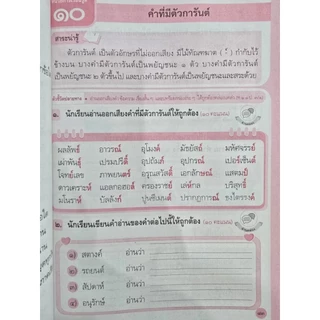 ๑๐
คำที่มีตัวการันต์
สาระน่ารู้
ตัวการันต์ เป็นตัวอักษรที่ไม่ออกเสียง มีไม้ทัณฑฆาต ( ์ ) กำกับไว้
ข้างบน บางคำมีตัวการันต์เป็นพยัญชนะ ๑ ตัว บางคำมีตัวการันต์
เป็นพยัญชนะ ๒ ตัวขึ้นไป และบางคำมีตัวการันต์เป็นพยัญชนะและสระด้วย
๑. นักเรียนอ่านออกเสียงคำที่มีตัวการันต์ให้ถูกต้อง (๑๐ คะแนน)
ผลลัพธ์ อาวรณ์ อุโมงค์ มัธยัสถ์ มหัศจรรย์
เผ่าพันธุ์ เปรมปรีดิ์ อุปถัมภ์ อุปกรณ์ เปอร์เซ็นต์
โจทย์เลข ภาพยนตร์ อรุณสวัสดิ์ เอกลักษณ์ แสตมป์
ดาวเคราะห์ แอลกอฮอล์ ครองราชย์ เล่ห์กล บริสุทธิ์
มโนราห์ บัลลังก์ ปูนซีเมนต์ ปรากฏการณ์ ธงไตรรงค์
๒. นักเรียนเขียนคำอ่านของคำต่อไปนี้ให้ถูกต้อง (๑๐ คะแนน)
๑) สตางค์ อ่านว่า
๒) รถยนต์ อ่านว่า
๓) สัปดาห์ อ่านว่า
๔) อนุรักษ์ อ่านว่า